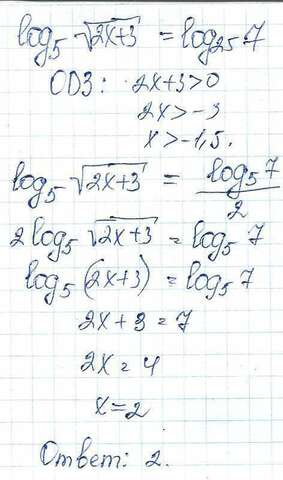 log₅ √(2x+3) = log₂₅ 7
ОДЗ: 2x+3>0
2x>-3
x>-1,5.
log₅ √(2x+3) = log₅7/2
2log₅ √(2x+3) = log₅ 7
log₅ (2x+3) = log₅ 7
2x+3=7
2x=4
x=2
Ответ: 2.